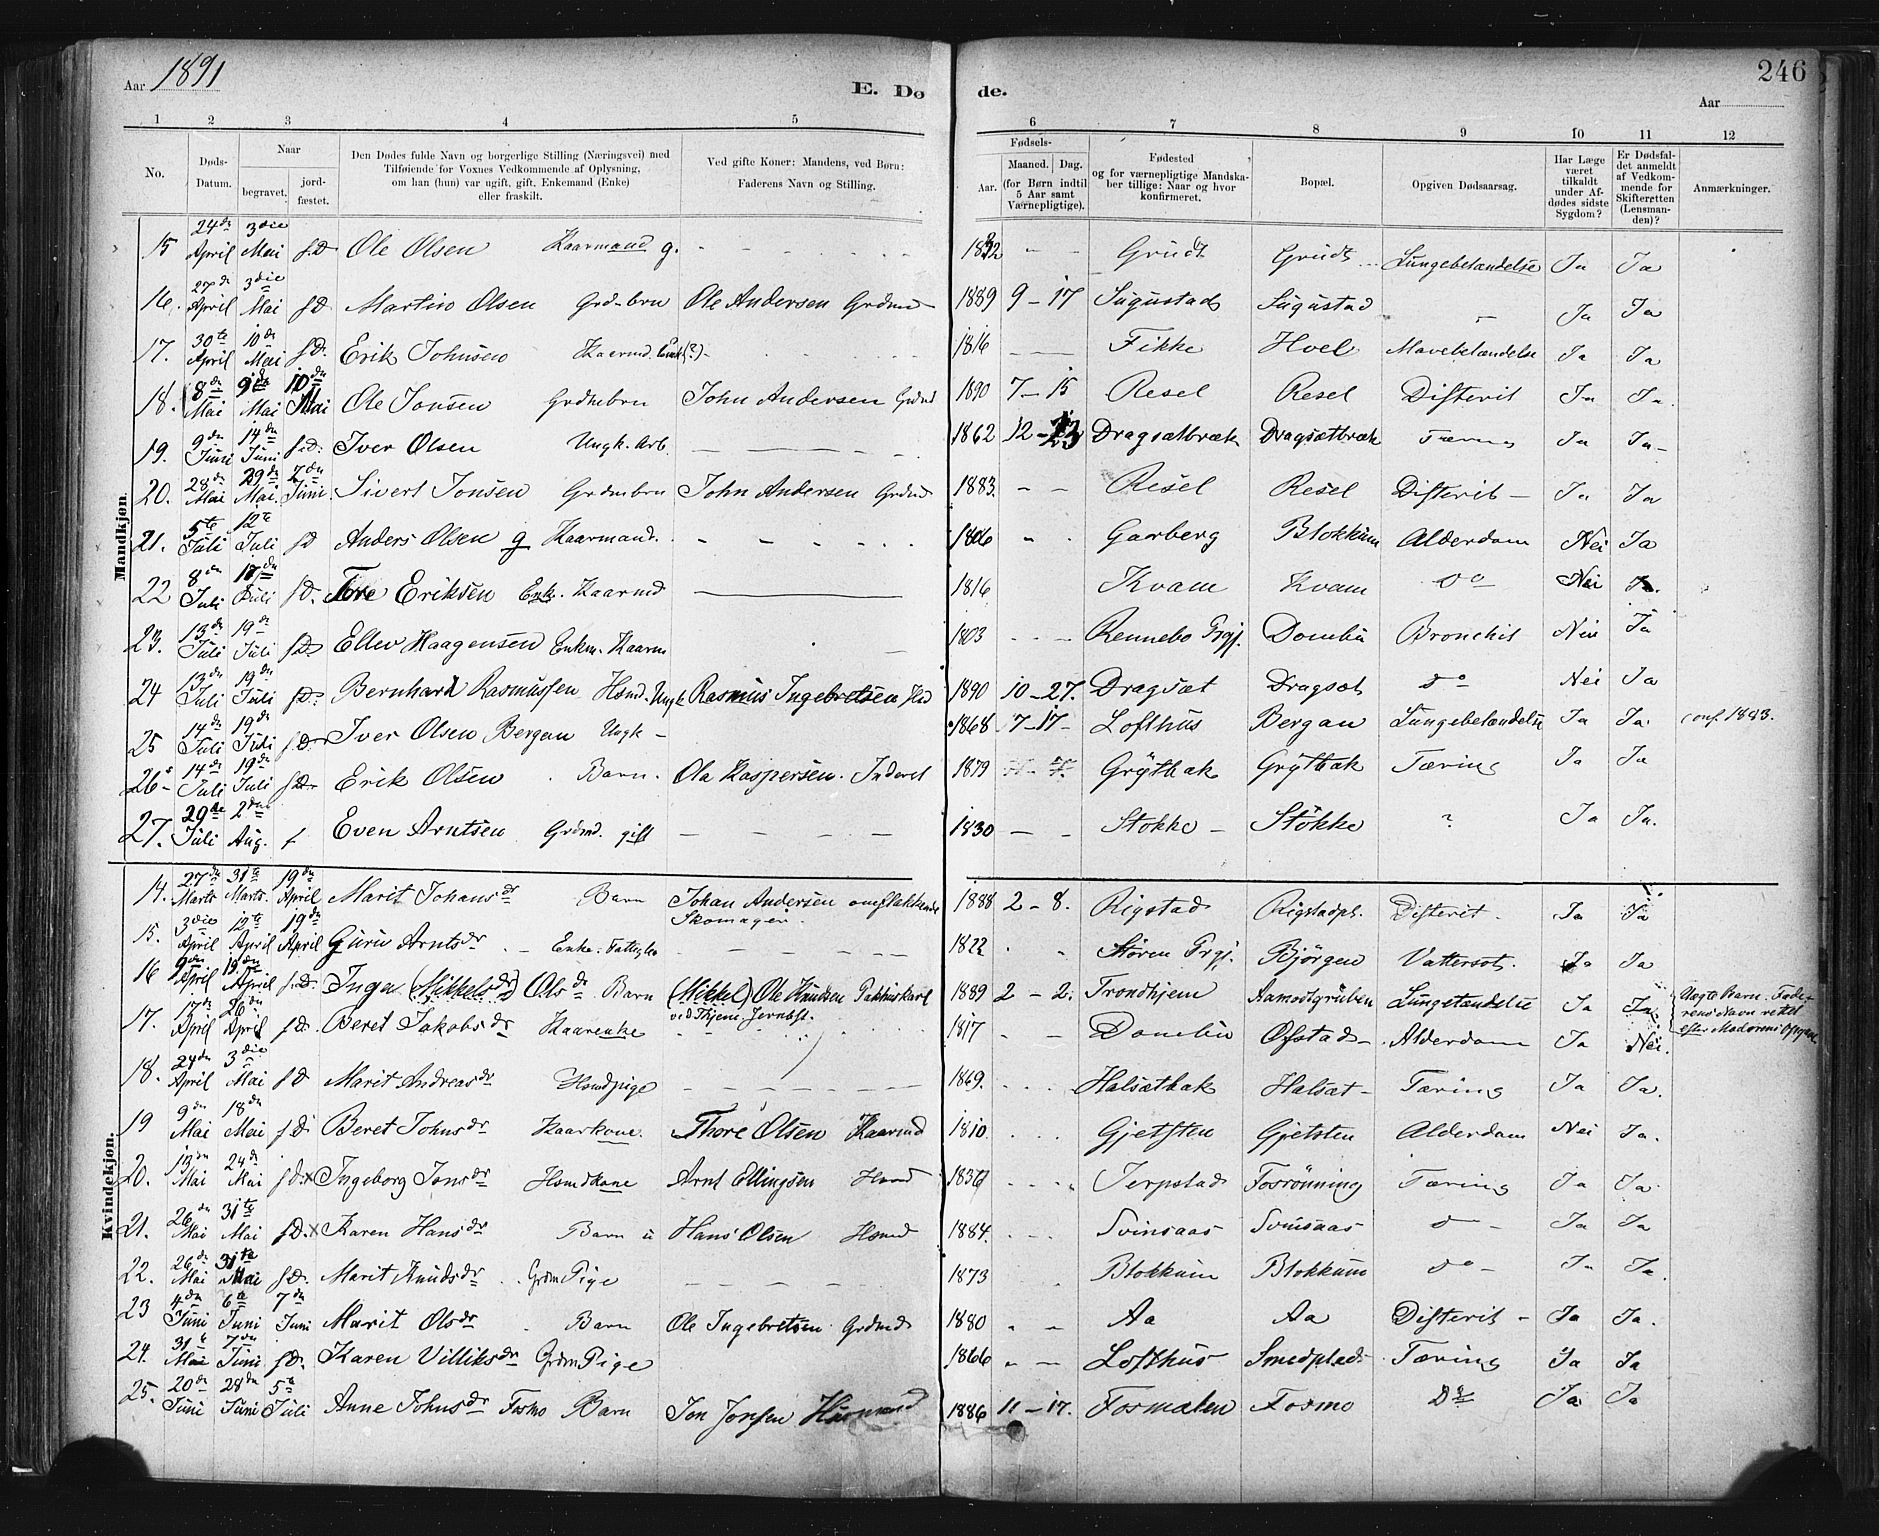 Aar 1891
E. Dö de.
246
Aar
1 2 3 4 5 6 7 8 9 10 11 12
No.
Døds-Datum.
Naar
begravet.
jord-fæstet.
Den Dødes fulde Navn og borgerlige Stilling (Næringsvei) med
Tilføiende for Voxnes Vedkommende af Oplysning,
om han (hun) var ugift, gift, Enkemand (Enke)
eller fraskilt.
Ved gifte Koner: Mandens, ved Børn:
Faderens Navn og Stilling.
Fødsels-
Aar.
Maaned.
Dag.
(for Børn indtil
5 Aar samt
Værnepligtige).
Fødested
og for værnepligtige Mandska-
ber tillige: Naar og hvor
konfirmeret.
Bopæl.
Opgiven Dødsaarsag.
Har Læge
været
tilkaldt
under Af-
dødes sidste
Sygdom?
Er Dødsfal-
det anmeldt
af Vedkom-
mende for
Skifteretten
(Lensman-
den)?
Anmærkninger.
Mandkjøn.
15 24de April 3die Mai f.D. Ole Olsen Kaarmand g. Grudt Grudt Lungebetændelse Ja Ja
16. 27de April 3die Mai f.D Martin Olsen Grdmbrn Ole Andersen Grdmd 1889 9 - 17 Sugustad Sugustad " Ja Ja
17. 30te April 10de Mai f.D. Erik Johnsen Kaarmd. Enk(?) 1816 Fikke Hoel Mavebetændelse Ja Ja
18. 8de Mai 9de Mai 10de Mai Ole Jonsen Grdmbrn John Andersen Grdmd 1890 7 - 15 Resel Resel Difterit Ja Ja.
19. 9de Juni 14de Juni f.D. Iver Olsen Ungk. Arb. 1862 12 - 23 Dragsætbræk Dragsætbræk Tæring Ja Ja
20. 28de Mai 29de Mai. 2den Juni Sivert Jonsen Grdmbrn John Andersen Grdmd 1883. Resel Resel Difterit Ja Ja
21. 5te Juli 12te Juli f.D Anders Olsen g Kaarmand. 1806 Garberg Blokkum Alderdom Nei Ja
22 8de Juli 17de Juli f.D. Tore Eriksen Enk. Kaarmd 1816 Kvam Kvam do Nei Ja.
23. 13de Juli 19de Juli f.D. Ellev Haagensen Enkm. Kaarm 1803 Rennebo Prgj. Dombu Bronchit Nei Ja
24 13de Juli 19de Juli f.D. Bernhard Rasmussen Hsmd. Ungk Rasmus Ingebretsen Hsd 1890 10 - 27. Dragsæt Dragsæt do Nei Ja
25 14de Juli 19de Juli f.D. Iver Olsen Bergan Ungk 1868 7 - 17 Lofthus Bergan Lungebetændelse Ja Ja. conf. 1883.
26 14de Juli 19de Juli f.D. Erik Olsen Barn. Ola Kaspersen. Inderst 1879 Grytbak Grytbak Tæring Ja Ja
27. 29de Juli 2den Aug. f Even Arntsen Grdmd. gift 1830 Stokke Stokke ? Ja Ja.
Kvindekjøn.
14. 27de Marts 31te Marts. 19de April Marit Johansdr Barn Johan Andersen omflakkende
Skomager. 1888 2 - 8. Rigstad Rigstadpl. Difterit. Ja Ja
15. 3die April 12te April 19de April Guru Arntsdr Enke. Fattiglem 1822 Støren Prgj. Bjørgen Vattersot. Ja Ja
16 9de April April f.D. Inga (Mikkelsdr) Olsdr Barn (Mikkel) Ole Knudsen Pakhuskarl
ved Thjem. Jernbst. 1889 2 - 2. Trondhjem Aamodtgruben Lungetændelse Ja Ja Uægte Barn. Fade-
rens Navn rettet
efter Moderens Opgave
17. 17de April 26de April f.D. Beret Jakobsdr Kaarenke 1817 Dombu Øfstad Alderdom Ja Nei.
18. 24de April 3die Mai f.D Marit Andreasdr Hsmdpige 1869. Halsætbak Halsæt Tæring Ja Ja.
19 9de Mai 18de Mai f.D. Beret Johnsdr Kaarkone. Thore Olsen Kaarmd 1810. Gjetsten Gjetsten Alderdom Nei Ja.
20. 13de Mai 24de Mai f.D.x Ingeborg Jonsdr Hsmdkone Arnt Ellingsen Hsmd 1836 Jerpstad Fosrønning Tæring Ja Ja.
21. 26de Mai 31te Mai f.D.x Karen Hansdr Barn u Hans Olsen Hsmd 1884. Svinsaas Svinsaas do Ja Ja
22. 26de Mai 31te Mai f.D. Marit Knudsdr Grdm Pige 1873 Blokkum Blokkum do Ja Ja.
23 4de Juni 6te Juni 7de Juni Marit Olsdr Barn Ole Ingebretsen Grdmd 1880 Aa Aa Difterit Ja Ja.
24. 31te Mai 7de Juni f.D. Karen Villiksdr Grdm Pige 1866 Lofthus Smedplads Tæring Ja Ja
25. 20de Juni 28de Juni 5te Juli Anne Johnsdr Fosmo Barn Jon Jonsen Husmand 1886 11 - 17. Fosmoten Fosmo Do Ja Ja